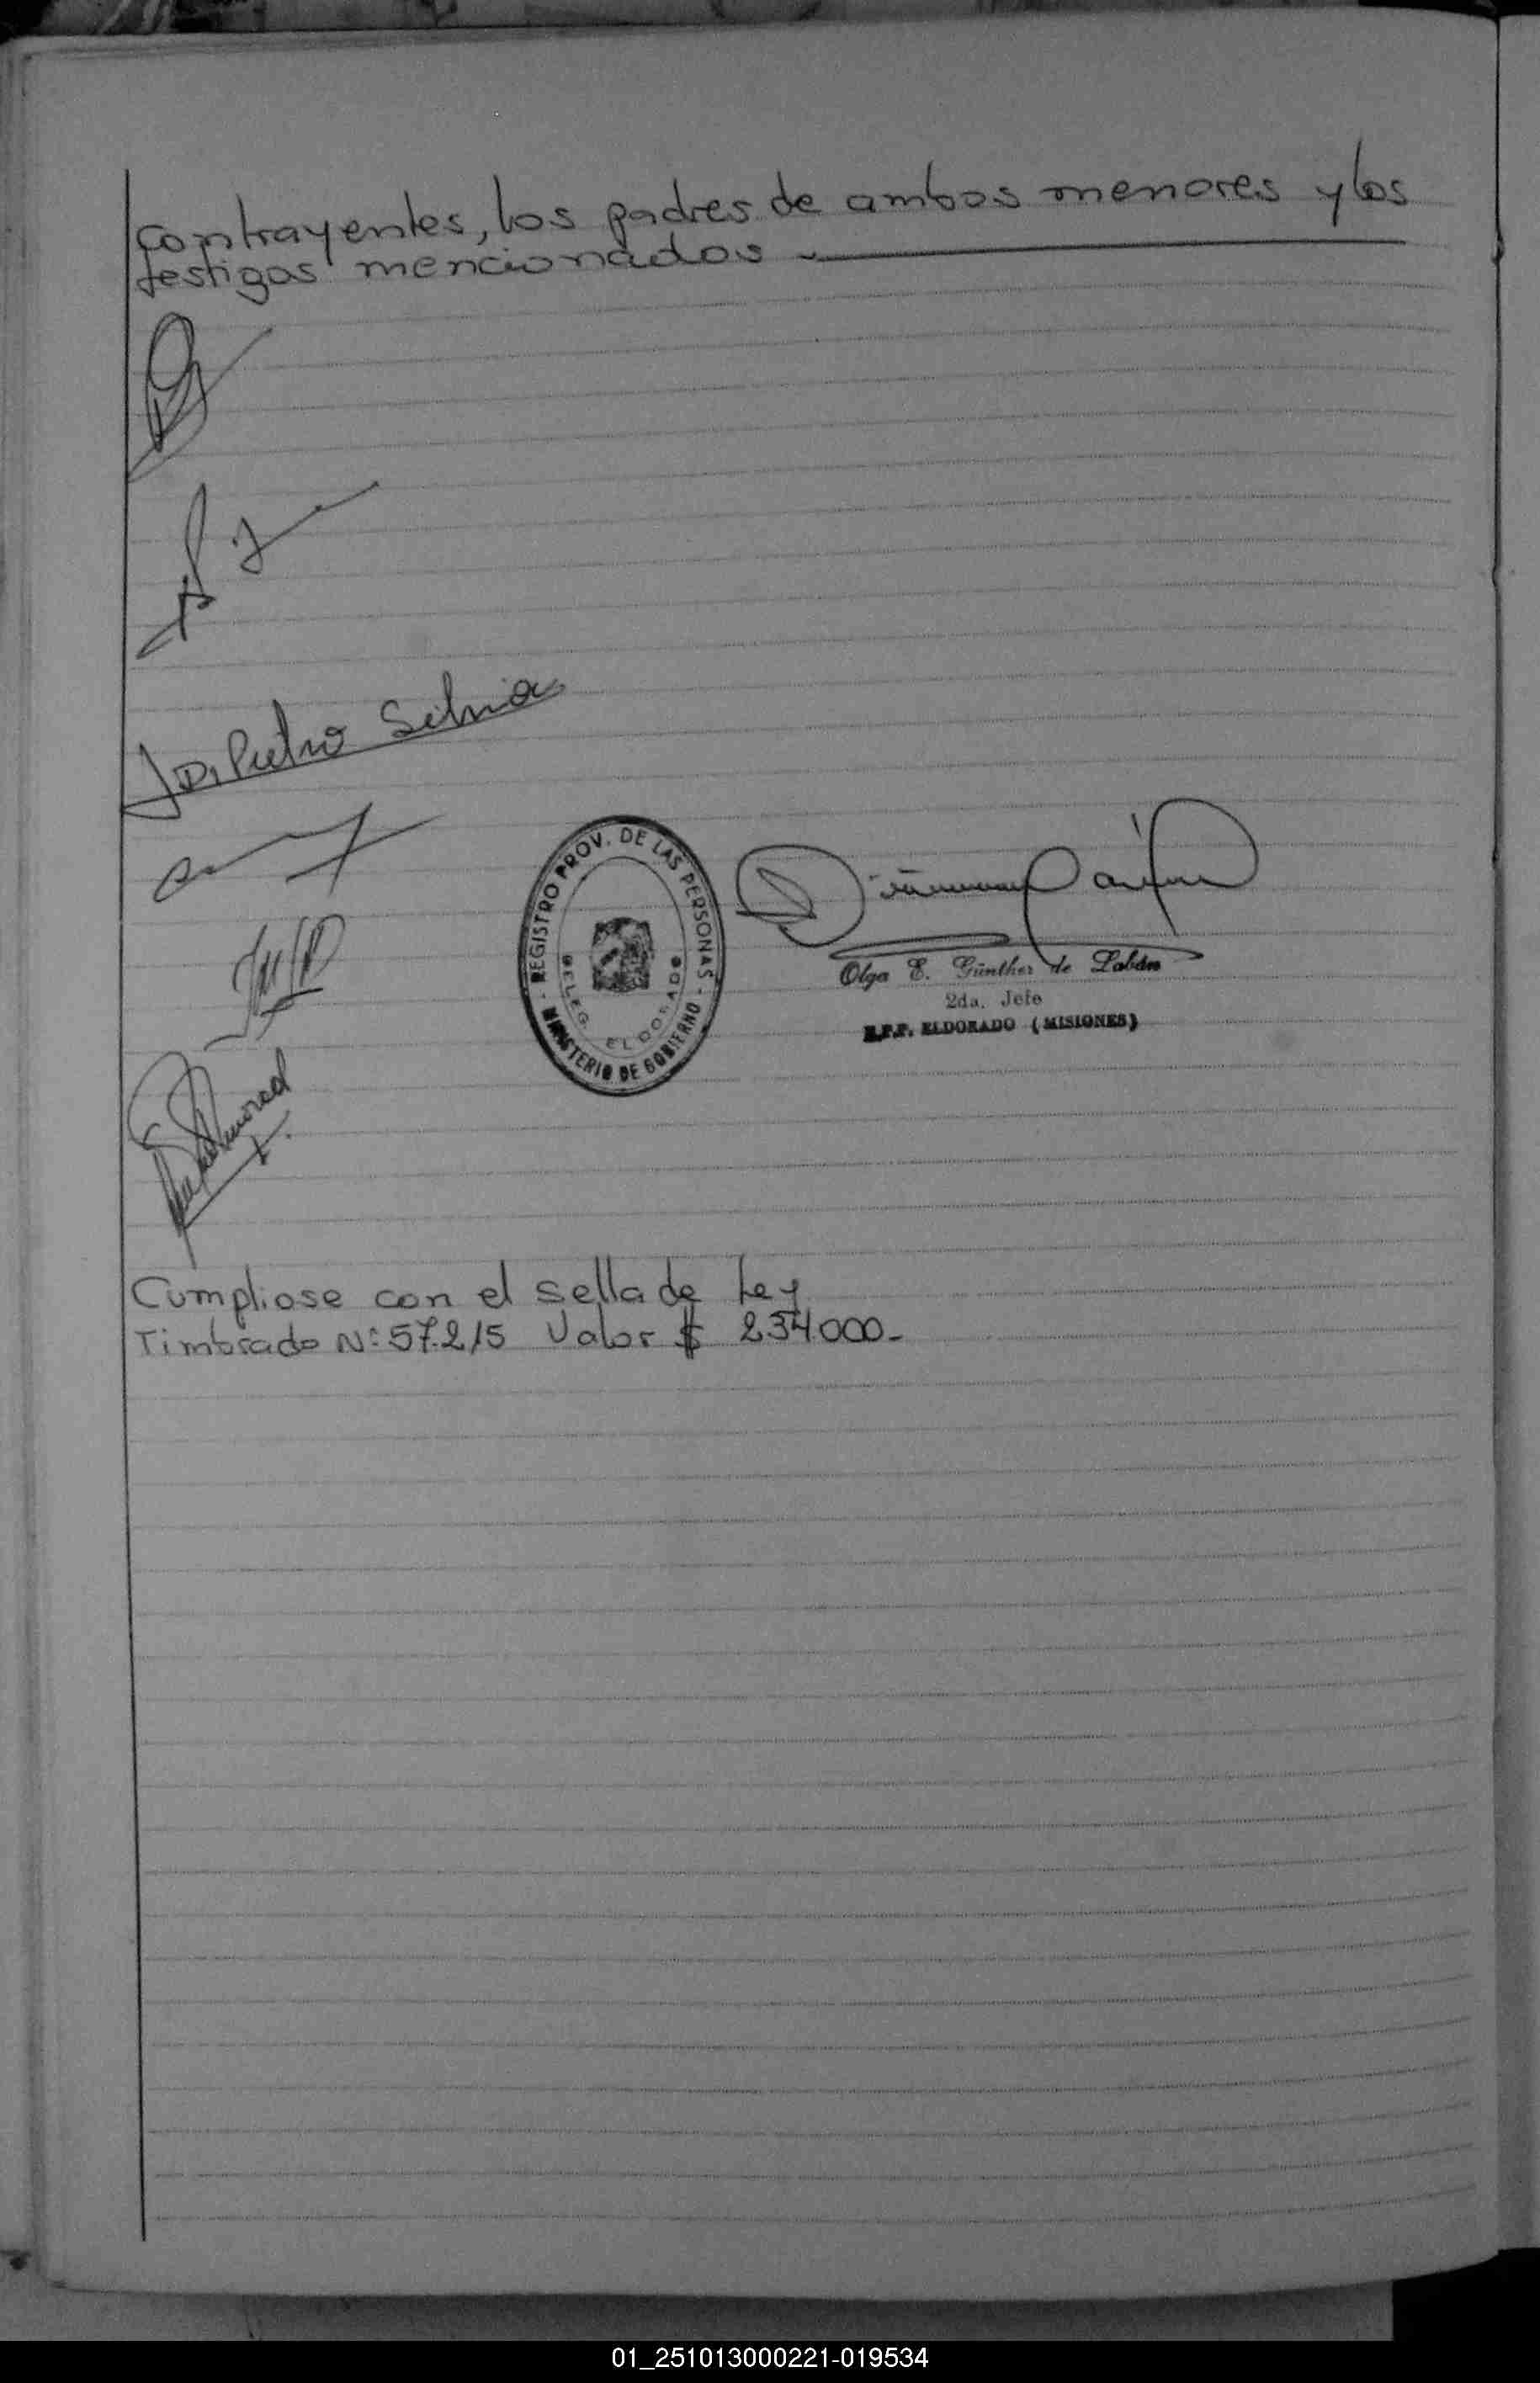 contrayentes, los padres de ambos menores y los
testigos mencionados
Di Pietro Silvia
REGISTRO PROV. DE LAS PERSONAS - MINISTERIO DE GOBIERNO -
DELEG. ELDORADO
Olga E. Günther de Labán
2da. Jefe
R.P.P. ELDORADO (MISIONES)
Cumpliose con el sellado de Ley
Timbrado Nº: 57.215 Valor $ 234.000-
01_251013000221-019534